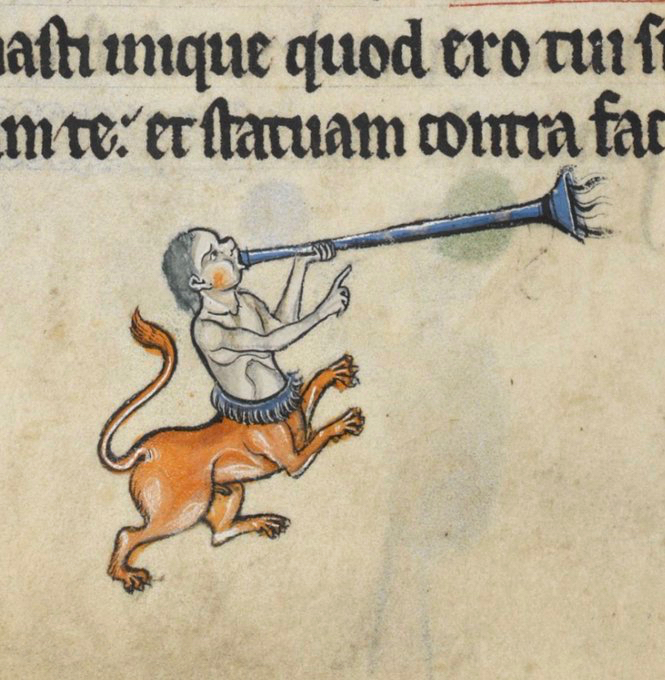 asti inique quod ero tui si
m te: et statuam contra fac